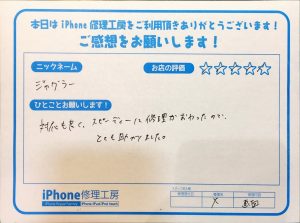 本日は iPhone 修理工房をご利用頂きありがとうございます!
ご感想をお願いします!
ニックネーム
お店の評価 ☆☆☆☆☆
ジャグラー
ひとことお願いします!
対応も良く、スピーディーに修理がおわったので、
とても助かりました。
iPhone修理工房